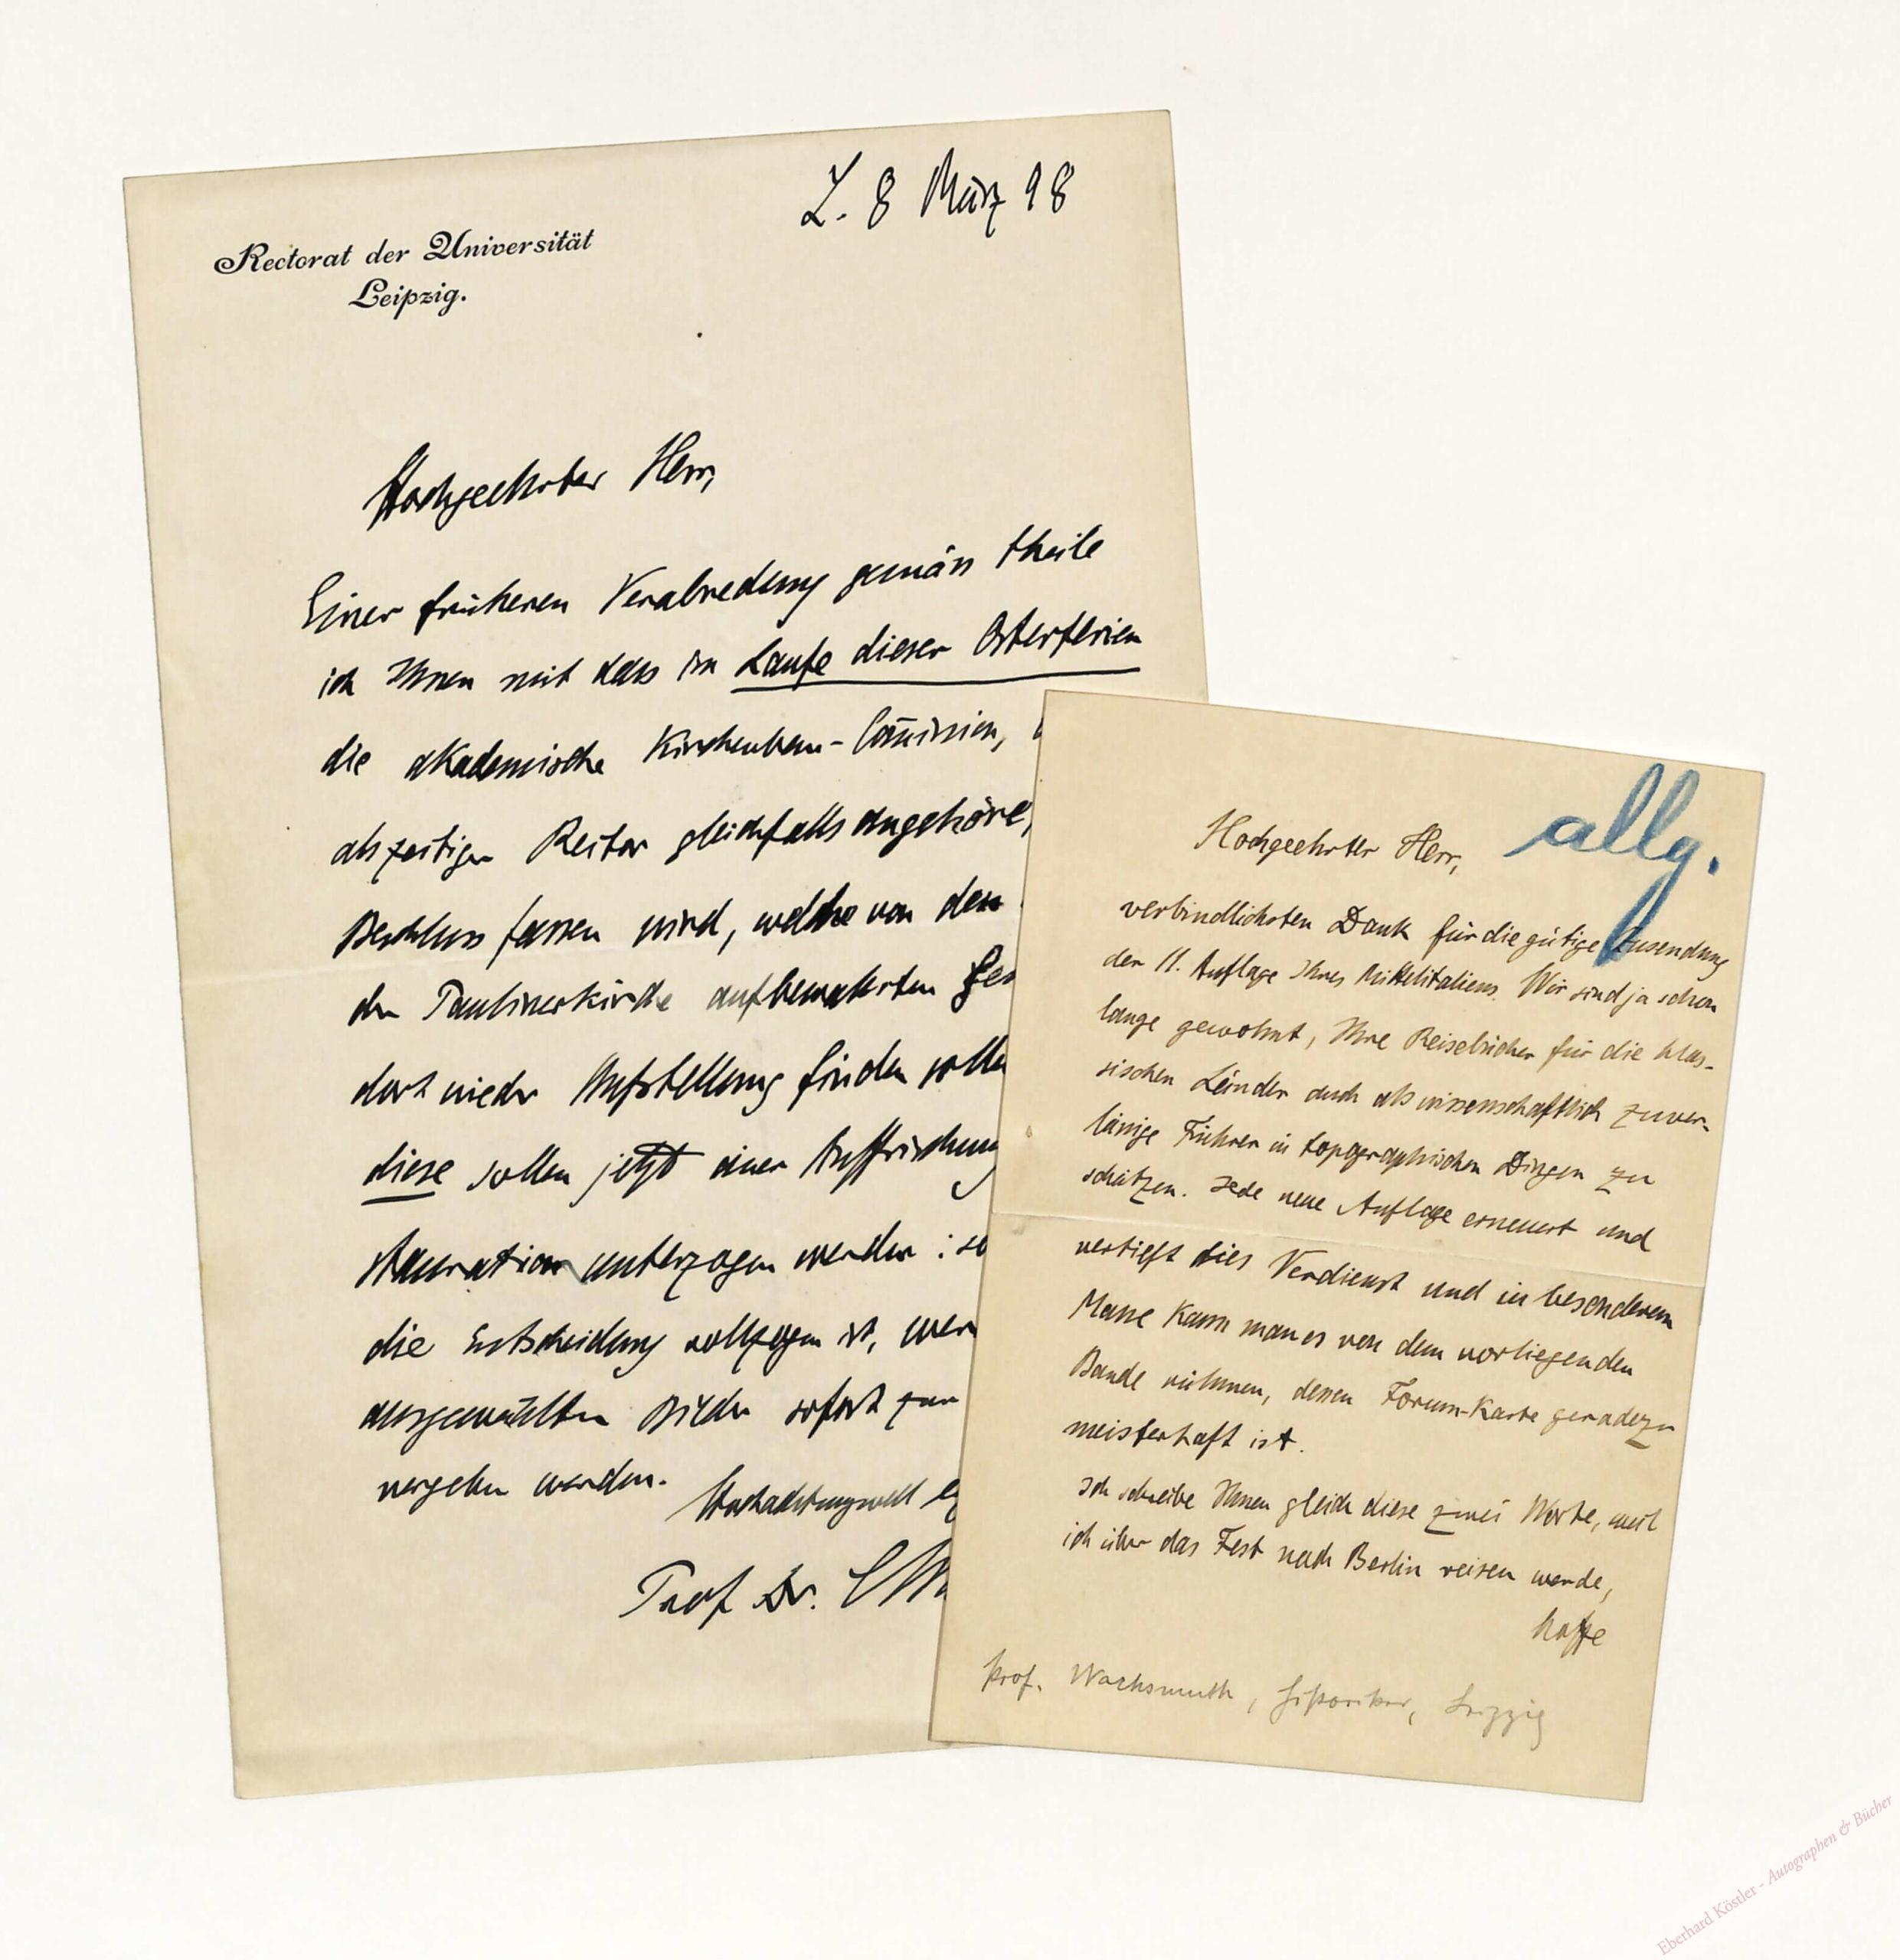 L. 8 März 98
Rectorat der Universität
Leipzig.
Hochgeehrter Herr,
Einer früheren Verabredung gemäss theile
ich Ihnen mit dass im Laufe dieser Osterferien
die akademische Kirchenbau-Com̅ission,
als zeitiger Rector gleichfalls angehöre,
Beschluss fassen wird, welche von den
der Paulinerkirche aufbewahrten
dort wieder Aufstellung finden
diese sollen jetzt einer Auffrischung
stauration unterzogen werden : so
die Entscheidung vollzogen ist, wer
ausgewählten Bilder sofort zur
vergeben werden.
Hochachtungsvoll
Prof Dr. C
allg.
Hochgeehrter Herr,
verbindlichsten Dank für die gütige Zusendung
der 11. Auflage Ihres Mittelitaliens. Wir sind ja schon
lange gewohnt, Ihre Reisebücher für die klas-
sischen Länder auch als wissenschaftlich zuver-
lässige Führer in topographischen Dingen zu
schätzen. Jede neue Auflage erneuert und
vertieft dies Verdienst und in besonderem
Masse kann man es von dem vorliegenden
Bande rühmen, dessen Forum-Karte geradezu
meisterhaft ist.
Ich schreibe Ihnen gleich diese zwei Worte, weil
ich über das Fest nach Berlin reisen werde,
hoffe
Prof. Wachsmuth, Historiker, Leipzig
Eberhard Köstler - Autographen & Bücher